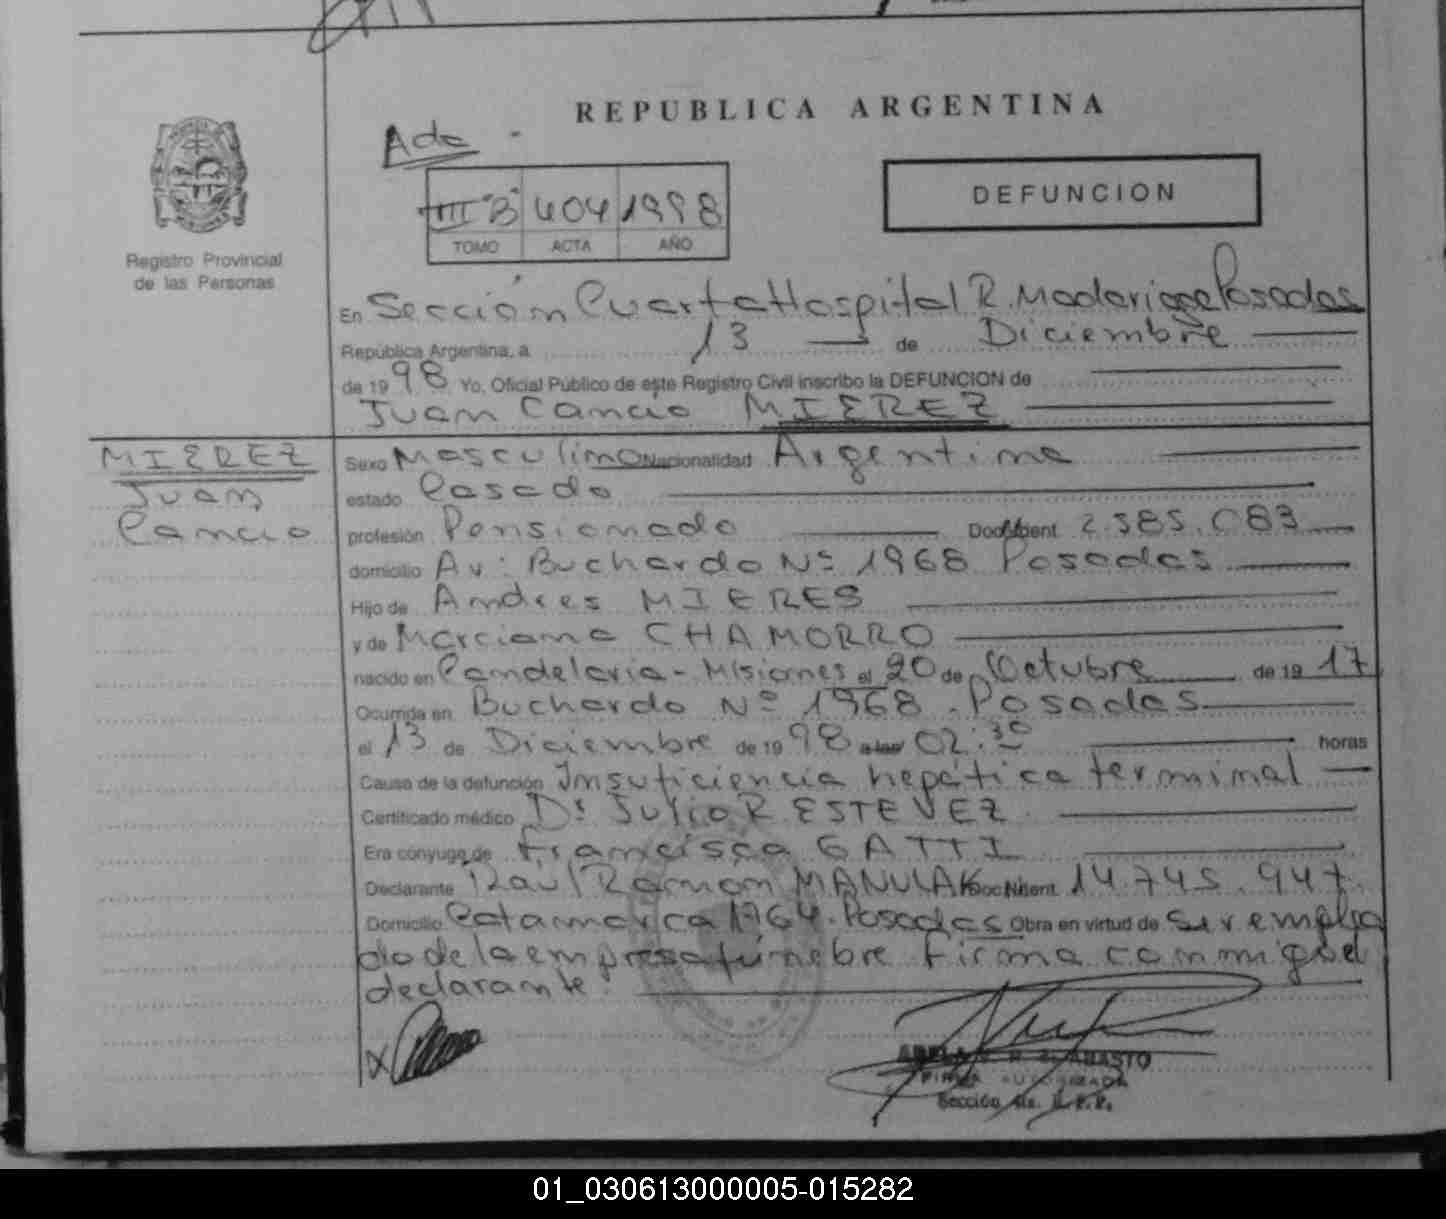 REPUBLICA ARGENTINA
Ada
III "B" 404 1998
TOMO ACTA AÑO
DEFUNCION
Registro Provincial
de las Personas
En Sección Cuarta Hospital R. Madariaga Posadas
República Argentina, a 13 de Diciembre
de 1998 Yo, Oficial Público de este Registro Civil inscribo la DEFUNCION de
Juan Cancio MIEREZ
MIEREZ
Juan
Cancio
Sexo Masculino Nacionalidad Argentina
estado Casado
profesión Pensionado Doc. Ident. 2.585.083
domicilio Av: Buchardo Nº 1968 Posadas
Hijo de Andres MIERES
y de Marciana CHAMORRO
nacido en Candelaria - Misiones el 20 de Octubre de 1917
Ocurrida en Buchardo Nº 1968. Posadas
el 13 de Diciembre de 1998 a las 02:30 horas
Causa de la defunción Insuficiencia hepática terminal
Certificado médico Dr Julio R. ESTEVEZ
Era conyuge de Francisca GATTI
Declarante Raúl Ramon MANULAK Doc. Ident. 14.745.947
Domicilio Catamarca 1764. Posadas Obra en virtud de ser emplea
do de la empresa fúnebre firma conmigo el
declarante.
X
ABASTO
FIRMA AUTORIZADA
Sección 4ta. R.P.P.
01_030613000005-015282